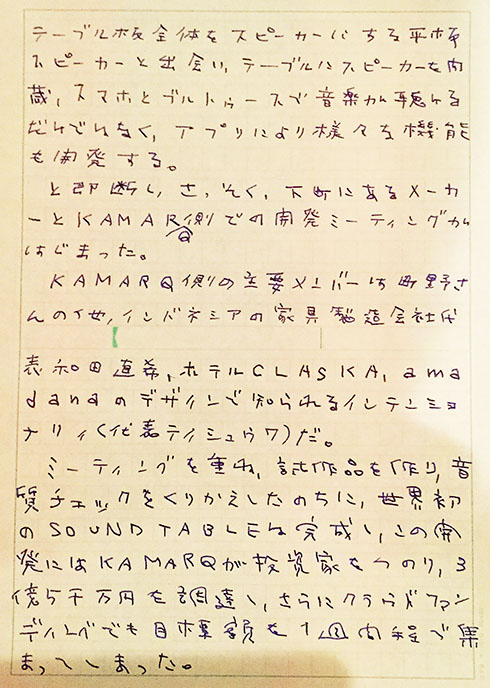 テーブル板全体をスピーカーにする平板
スピーカーと出会い、テーブルにスピーカーを内
蔵、スマホとブルトゥースで音楽が聴ける
だけでなく、アプリにより様々な機能
も開発する。
と即断し、さっそく、下町にあるメーカ
ーとKAMARQ側での開発ミーティングが
はじまった。
KAMARQ側の主要メンバーは町野さ
んの他、インドネシアの家具製造会社代
表和田直希、ホテルCLASKA、ama
danaのデザインで知られるインテンショ
ナリィ（代表テイシュウワ）だ。
ミーティングを重ね、試作品を作り、音
質チェックをくりかえしたのちに、世界初
のSOUND TABLEは完成し、この開
発にはKAMARQが投資家をつのり、3
億5千万円を調達し、さらにクラウドファン
ディングでも目標額を1週間程で集
まってしまった。